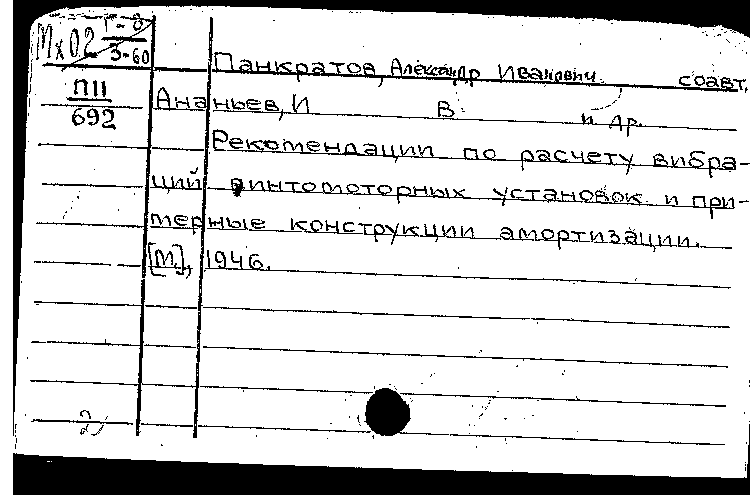 Мх02 Г-8
3-60
Панкратов, Александр Иванович соавт.
П11
692
Ананьев, И В. и др.
Рекомендации по расчету вибра-
ций винтомоторных установок и при-
мерные конструкции амортизации.
[М.], 1946.
2